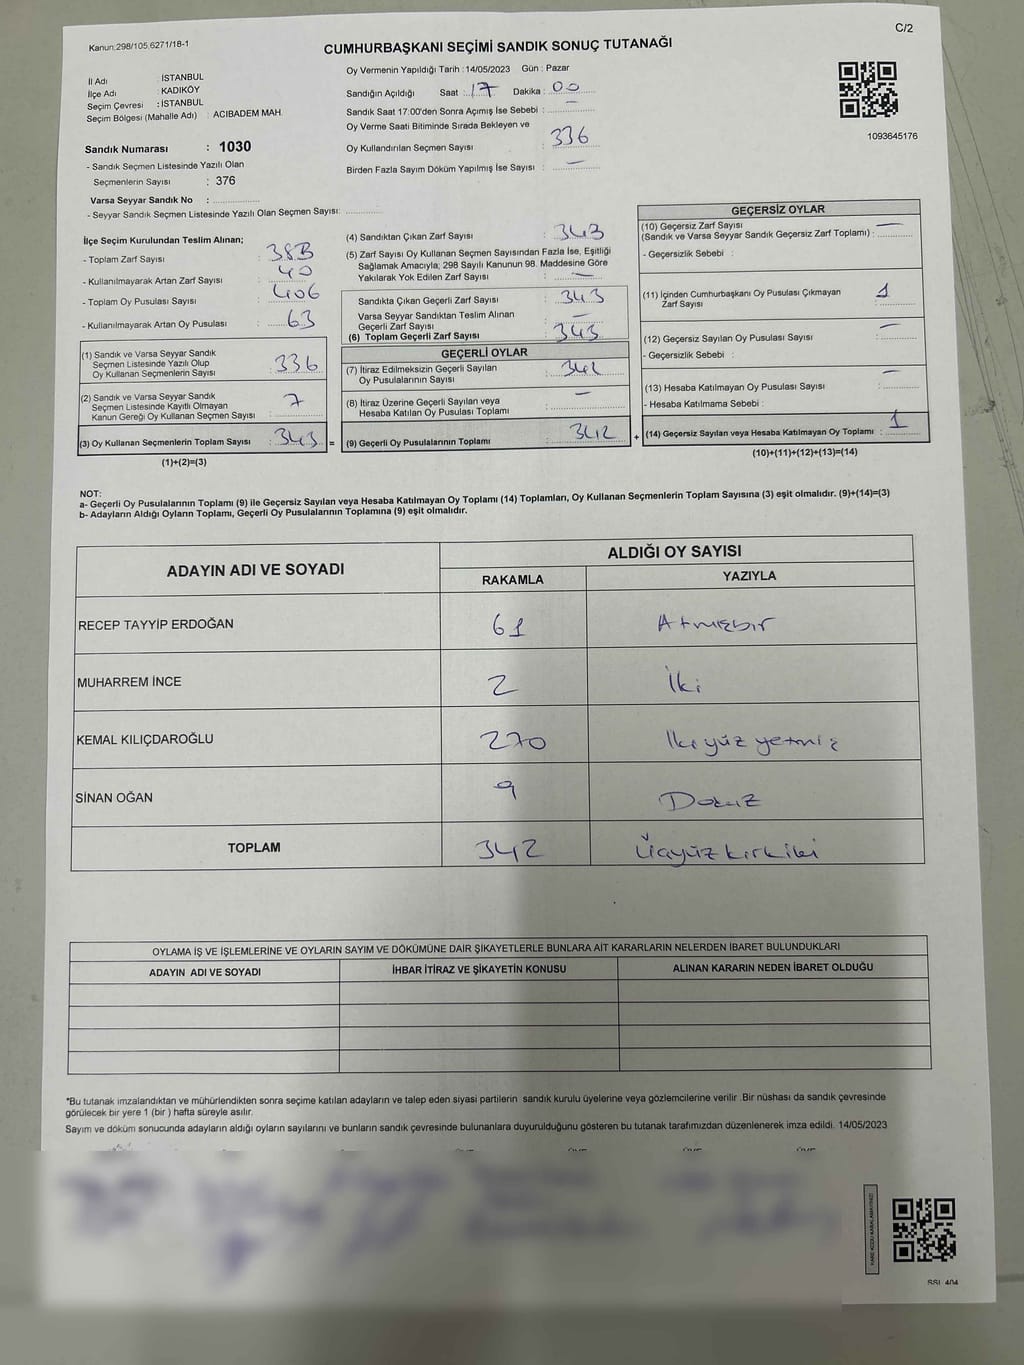 Kanun:298/105.6271/18-1
C/2
CUMHURBAŞKANI SEÇİMİ SANDIK SONUÇ TUTANAĞI
İl Adı : İSTANBUL
İlçe Adı : KADIKÖY
Seçim Çevresi : İSTANBUL
Seçim Bölgesi (Mahalle Adı) : ACIBADEM MAH.
Sandık Numarası : 1030
- Sandık Seçmen Listesinde Yazılı Olan
Seçmenlerin Sayısı : 376
Varsa Seyyar Sandık No :
- Seyyar Sandık Seçmen Listesinde Yazılı Olan Seçmen Sayısı:
Oy Vermenin Yapıldığı Tarih : 14/05/2023 Gün : Pazar
Sandığın Açıldığı Saat : 17 Dakika : 00
Sandık Saat 17:00'den Sonra Açımış İse Sebebi : —
Oy Verme Saati Bitiminde Sırada Bekleyen ve
Oy Kullandırılan Seçmen Sayısı : 336
Birden Fazla Sayım Döküm Yapılmış İse Sayısı : —
1093645176
İlçe Seçim Kurulundan Teslim Alınan;
- Toplam Zarf Sayısı : 383
- Kullanılmayarak Artan Zarf Sayısı : 40
- Toplam Oy Pusulası Sayısı : 406
- Kullanılmayarak Artan Oy Pusulası : 63
(1) Sandık ve Varsa Seyyar Sandık
Seçmen Listesinde Yazılı Olup
Oy Kullanan Seçmenlerin Sayısı : 336
(2) Sandık ve Varsa Seyyar Sandık
Seçmen Listesinde Kayıtlı Olmayan
Kanun Gereği Oy Kullanan Seçmen Sayısı : 7
(3) Oy Kullanan Seçmenlerin Toplam Sayısı : 343 =
(1)+(2)=(3)
(4) Sandıktan Çıkan Zarf Sayısı : 343
(5) Zarf Sayısı Oy Kullanan Seçmen Sayısından Fazla İse, Eşitliği
Sağlamak Amacıyla; 298 Sayılı Kanunun 98. Maddesine Göre
Yakılarak Yok Edilen Zarf Sayısı : —
Sandıkta Çıkan Geçerli Zarf Sayısı : 343
Varsa Seyyar Sandıktan Teslim Alınan
Geçerli Zarf Sayısı : —
(6) Toplam Geçerli Zarf Sayısı : 343
GEÇERLİ OYLAR
(7) İtiraz Edilmeksizin Geçerli Sayılan
Oy Pusulalarının Sayısı : 342
(8) İtiraz Üzerine Geçerli Sayılan veya
Hesaba Katılan Oy Pusulası Toplamı : —
(9) Geçerli Oy Pusulalarının Toplamı : 342 +
GEÇERSİZ OYLAR
(10) Geçersiz Zarf Sayısı —
(Sandık ve Varsa Seyyar Sandık Geçersiz Zarf Toplamı) :
- Geçersizlik Sebebi :
(11) İçinden Cumhurbaşkanı Oy Pusulası Çıkmayan
Zarf Sayısı : 1
(12) Geçersiz Sayılan Oy Pusulası Sayısı : —
- Geçersizlik Sebebi :
(13) Hesaba Katılmayan Oy Pusulası Sayısı : —
- Hesaba Katılmama Sebebi :
(14) Geçersiz Sayılan veya Hesaba Katılmayan Oy Toplamı : 1
(10)+(11)+(12)+(13)=(14)
NOT:
a- Geçerli Oy Pusulalarının Toplamı (9) ile Geçersiz Sayılan veya Hesaba Katılmayan Oy Toplamı (14) Toplamları, Oy Kullanan Seçmenlerin Toplam Sayısına (3) eşit olmalıdır. (9)+(14)=(3)
b- Adayların Aldığı Oyların Toplamı, Geçerli Oy Pusulalarının Toplamına (9) eşit olmalıdır.
ADAYIN ADI VE SOYADI
ALDIĞI OY SAYISI
RAKAMLA YAZIYLA
RECEP TAYYİP ERDOĞAN 61 Atmışbir
MUHARREM İNCE 2 İki
KEMAL KILIÇDAROĞLU 270 İkiyüz yetmiş
SİNAN OĞAN 9 Dokuz
TOPLAM 342 Üçyüzkırkiki
OYLAMA İŞ VE İŞLEMLERİNE VE OYLARIN SAYIM VE DÖKÜMÜNE DAİR ŞİKAYETLERLE BUNLARA AİT KARARLARIN NELERDEN İBARET BULUNDUKLARI
ADAYIN ADI VE SOYADI İHBAR İTİRAZ VE ŞİKAYETİN KONUSU ALINAN KARARIN NEDEN İBARET OLDUĞU
*Bu tutanak imzalandıktan ve mühürlendikten sonra seçime katılan adayların ve talep eden siyasi partilerin sandık kurulu üyelerine veya gözlemcilerine verilir .Bir nüshası da sandık çevresinde
görülecek bir yere 1 (bir ) hafta süreyle asılır.
Sayım ve döküm sonucunda adayların aldığı oyların sayılarını ve bunların sandık çevresinde bulunanlara duyurulduğunu gösteren bu tutanak tarafımızdan düzenlenerek imza edildi. 14/05/2023
KARE KODU KARALAMAYINIZ!